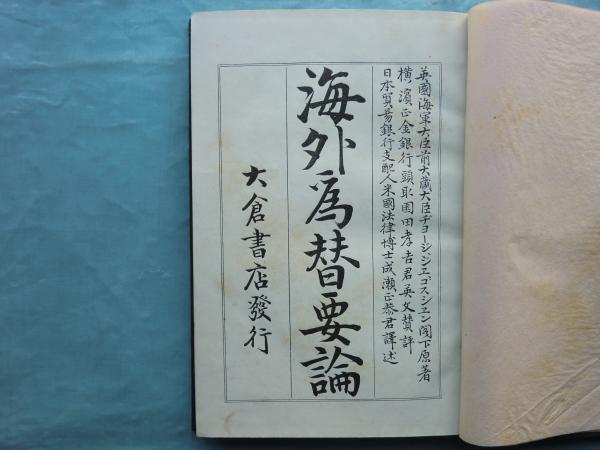 英國海軍大臣前大藏大臣チョージジエゴスシエン閣下原著
横濱正金銀行頭取園田孝吉君英文贊評
日本貿易銀行支配人米國法律博士成瀬正恭君譯述
海外爲替要論
大倉書店發行